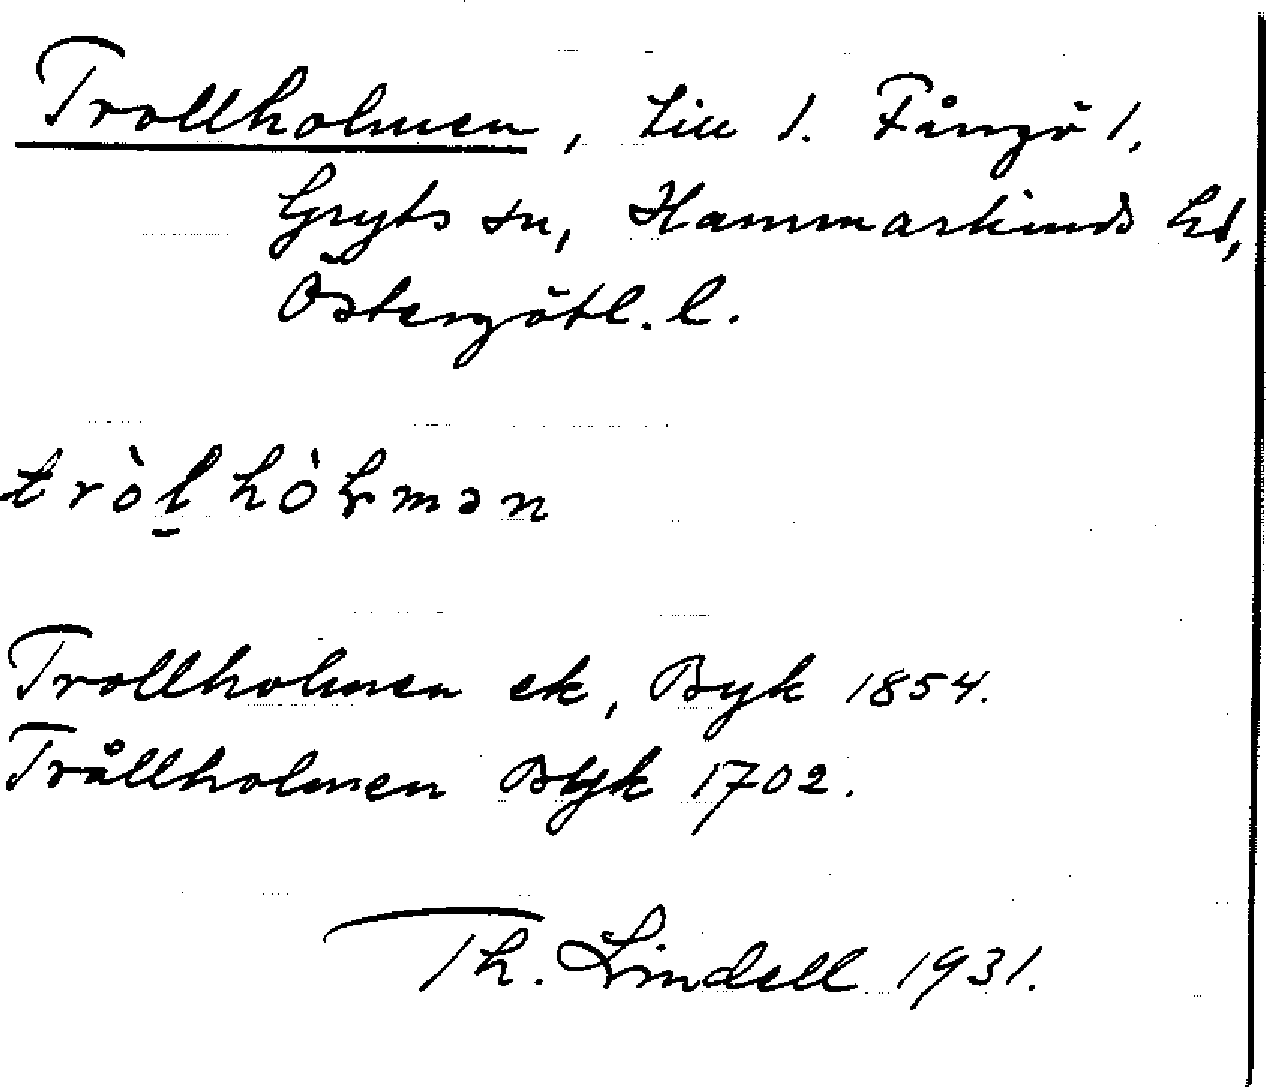 Trollholmen, Liu 1. Fångö 1,
Gryts sn, Hammarkinds hd,
Östergötl. l.
tròl̠hòɫmən
Trollholmen ek, Byk 1854.
Trållholmen Byk 1702.
Th. Lindell 1931.